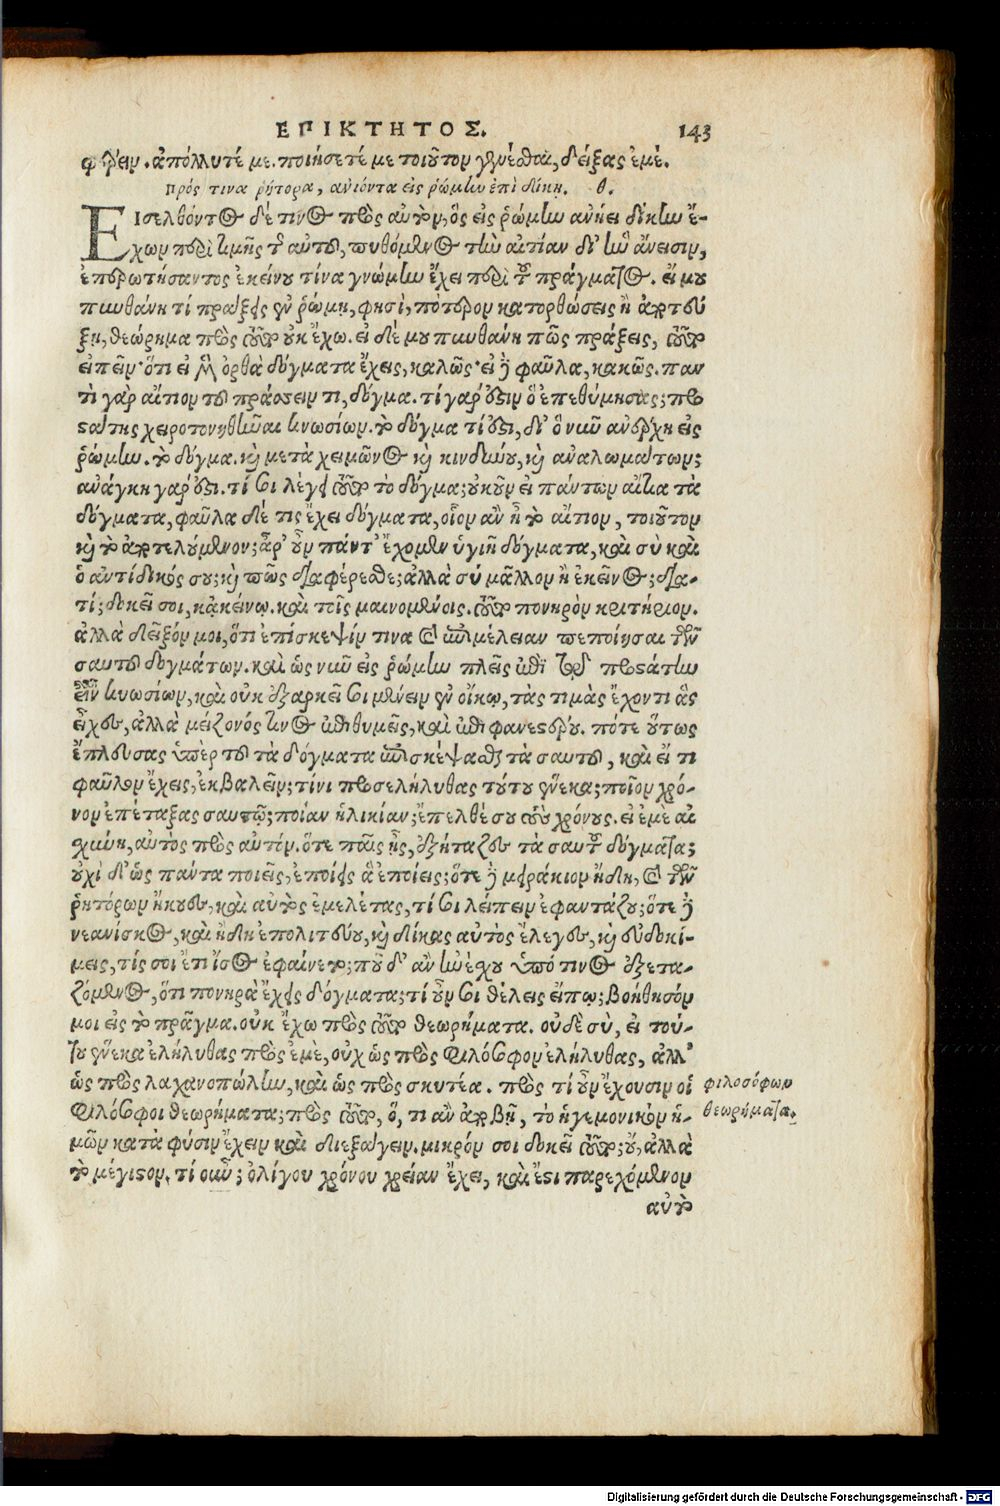 ΕΠΙΚΤΗΤΟΣ. 143
φέρειν. ἀπόλλυτέ με. ποιήσετέ με τοιοῦτον γενέσθαι, δείξας ἐμέ.
πρός τινα ῥήτορα, ἀνιόντα εἰς ῥώμην ἐπὶ δίκῃ. θ.
ΕΙσελθόντος δέ τινος πρὸς αὐτὸν, ὃς εἰς ῥώμην ἀνῄει δίκην ἔ-
χων περὶ τιμῆς τῆς αὐτοῦ, πυθόμενος τὴν αἰτίαν δι' ἣν ἄνεισιν,
ἐπερωτήσαντος ἐκείνου τίνα γνώμην ἔχει περὶ τοῦ πράγματος. εἴ μου
πυνθάνῃ τί πράξεις ἐν ῥώμῃ, φησὶ, πότερον κατορθώσεις ἢ ἀποτεύ
ξῃ, θεώρημα πρὸς τοῦτο οὐκ ἔχω. εἰ δέ μου πυνθάνῃ πῶς πράξεις, τοῦτο
εἰπεῖν· ὅτι εἰ μὲν ὀρθὰ δόγματα ἔχεις, καλῶς· εἰ δὲ φαῦλα, κακῶς. παν
τὶ γὰρ αἴτιον τοῦ πράσσειν τι, δόγμα. τί γάρ ἐστιν ὃ ἐπεθύμησας; προ
στάτης χειροτονηθῆναι κνωσίων. τὸ δόγμα τί ἐστι, δι' ὃ νῦν ἀνέρχῃ εἰς
ῥώμην. τὸ δόγμα. καὶ μετὰ χειμῶνος καὶ κινδύνου, καὶ ἀναλωμάτων;
ἀνάγκη γάρ ἐστι. τί σοι λέγει τοῦτο τὸ δόγμα; οὐκοῦν εἰ πάντων αἴτια τὰ
δόγματα, φαῦλα δέ τις ἔχει δόγματα, οἷον ἂν ᾖ τὸ αἴτιον, τοιοῦτον
καὶ τὸ ἀποτελούμενον; ἆρ' οὖν πάντ' ἔχομεν ὑγιῆ δόγματα, καὶ σὺ καὶ
ὁ ἀντίδικός σου; καὶ πῶς διαφέρεσθε; ἀλλὰ σύ μᾶλλον ἢ ἐκεῖνος; δια-
τί; δοκεῖ σοι, κἀκείνῳ. καὶ τοῖς μαινομένοις. τοῦτο πονηρὸν κριτήριον.
ἀλλὰ δεῖξόν μοι, ὅτι ἐπίσκεψίν τινα καὶ ἐπιμέλειαν πεποίησαι τῶν
σαυτοῦ δογμάτων. καὶ ὡς νῦν εἰς ῥώμην πλεῖς ἐπὶ τῷ προστάτην
εἶναι κνωσίων, καὶ οὐκ ἐξαρκεῖ σοι μένειν ἐν οἴκῳ, τὰς τιμὰς ἔχοντι ἃς
εἶχες, ἀλλὰ μείζονός τινος ἐπιθυμεῖς, καὶ ἐπιφανεστέρου. πότε οὕτως
ἔπλευσας ὑπὲρ τοῦ τὰ δόγματα ἐπισκέψασθαι τὰ σαυτοῦ, καὶ εἴ τι
φαῦλον ἔχεις, ἐκβαλεῖν; τίνι προσελήλυθας τούτου ἕνεκα; ποῖον χρό-
νον ἐπέταξας σαυτῷ; ποίαν ἡλικίαν; ἔπελθέ σου τοὺς χρόνους. εἰ ἐμὲ αἰ
σχύνῃ, αὐτὸς πρὸς αὑτόν. ὅτε παῖς ἦς, ἐξήταζες τὰ σαυτοῦ δόγματα;
οὐχὶ δ' ὡς πάντα ποιεῖς, ἐποίεις ἃ ἐποίεις; ὅτε δὲ μειράκιον ἤδη, καὶ τῶν
ῥητόρων ἤκουες, καὶ αὐτὸς ἐμελέτας, τί σοι λείπειν ἐφαντάζου; ὅτε δὲ
νεανίσκος, καὶ ἤδη ἐπολιτεύου, καὶ δίκας αὐτὸς ἔλεγες, καὶ εὐδοκί-
μεις, τίς σοι ἔτι ἴσος ἐφαίνετο; ποῦ δ' ἂν ἠνέσχου ὑπό τινος ἐξετα-
ζόμενος, ὅτι πονηρὰ ἔχεις δόγματα; τί οὖν σοι θέλεις εἴπω; βοήθησόν
μοι εἰς τὸ πρᾶγμα. οὐκ ἔχω πρὸς τοῦτο θεωρήματα. οὐδὲ σὺ, εἰ τού-
του ἕνεκα ἐλήλυθας πρὸς ἐμὲ, οὐχ ὡς πρὸς φιλόσοφον ἐλήλυθας, ἀλλ'
ὡς πρὸς λαχανοπώλην, καὶ ὡς πρὸς σκυτέα. πρὸς τί οὖν ἔχουσιν οἱ
φιλόσοφοι θεωρήματα; πρὸς τοῦτο, ὅ, τι ἂν ἀποβῇ, τὸ ἡγεμονικὸν ἡ-
μῶν κατὰ φύσιν ἔχειν καὶ διεξάγειν. μικρόν σοι δοκεῖ τοῦτο; οὔ, ἀλλὰ
τὸ μέγιστον. τί οὖν; ὀλίγου χρόνου χρείαν ἔχει, καὶ ἔστι παρεχόμενον
αὐτὸ
φιλοσόφων
θεωρήματα.
Digitalisierung gefördert durch die Deutsche Forschungsgemeinschaft - DFG